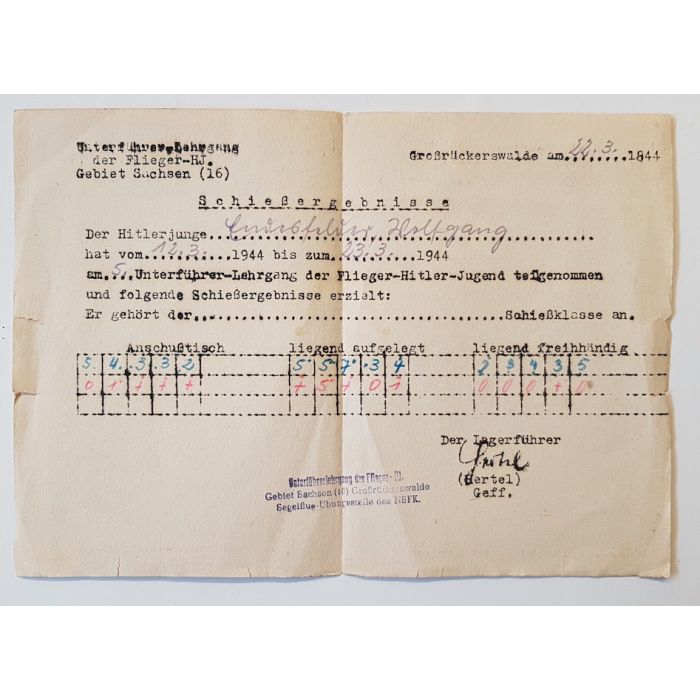 Unterführer-Lehrgang
der Flieger-HJ.
Gebiet Sachsen (16)
Großrückerswalde am 22.3. 1944
Schießergebnisse
Der Hitlerjunge Endesfelder, Wolfgang
hat vom 12.3. 1944 bis zum 23.3. 1944
am 5. Unterführer-Lehrgang der Flieger-Hitler-Jugend teilgenommen
und folgende Schießergebnisse erzielt:
Er gehört der........................Schießklasse an.
Anschußtisch liegend aufgelegt liegend freihändig
5 4 3 3 2 5 5 7 3 4 2 3 4 3 5
0 1 + + + + 5 + 0 1 0 0 0 + 0
Der Lagerführer
(Hertel)
Geff.
Unterführerlehrgang der Flieger-HJ.
Gebiet Sachsen (16) Großrückerswalde
Segelflug-Übungsstelle des NSFK.